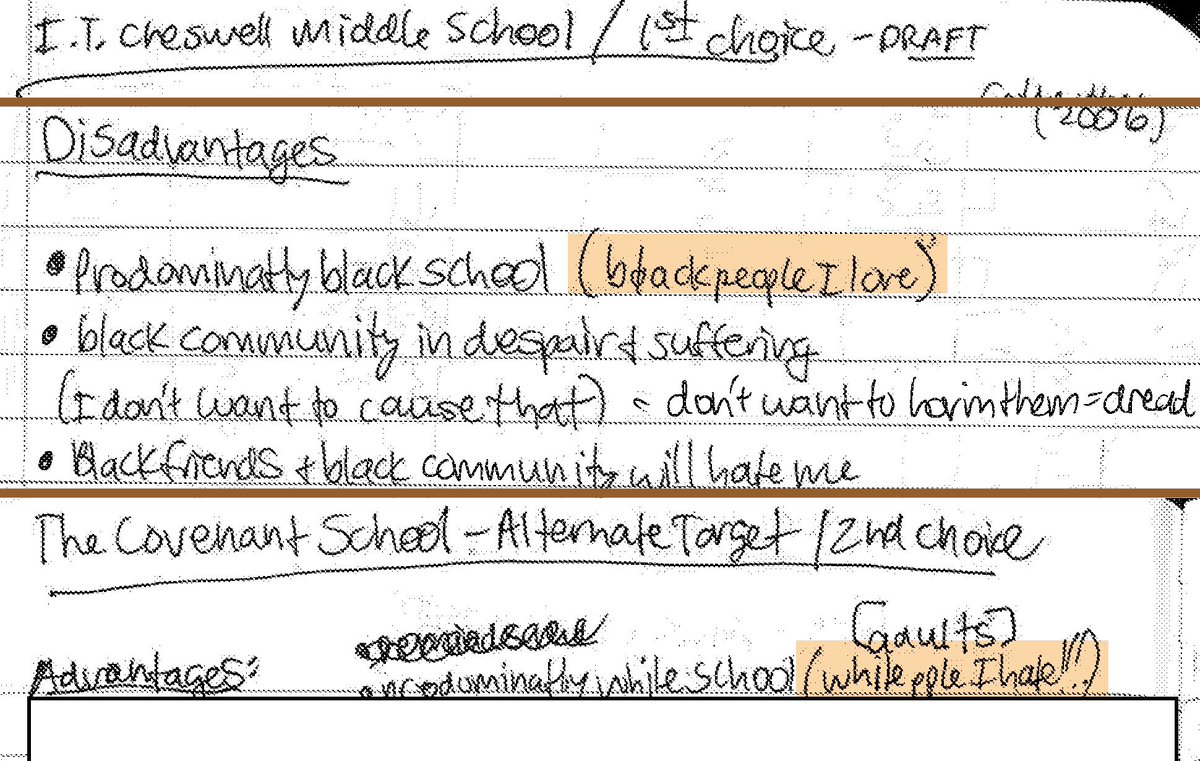 I.T. Creswell Middle School / 1st choice - DRAFT
(2006)
Disadvantages
• Prodominatly black school (black people I love)
• black community in despair & suffering
(I don't want to cause that) - don't want to harm them = dread
• Black friends & black community will hate me
The Covenant School - Alternate Target / 2nd choice
[adults]
Advantages: • predominatly white school (white pple I hate!!!)